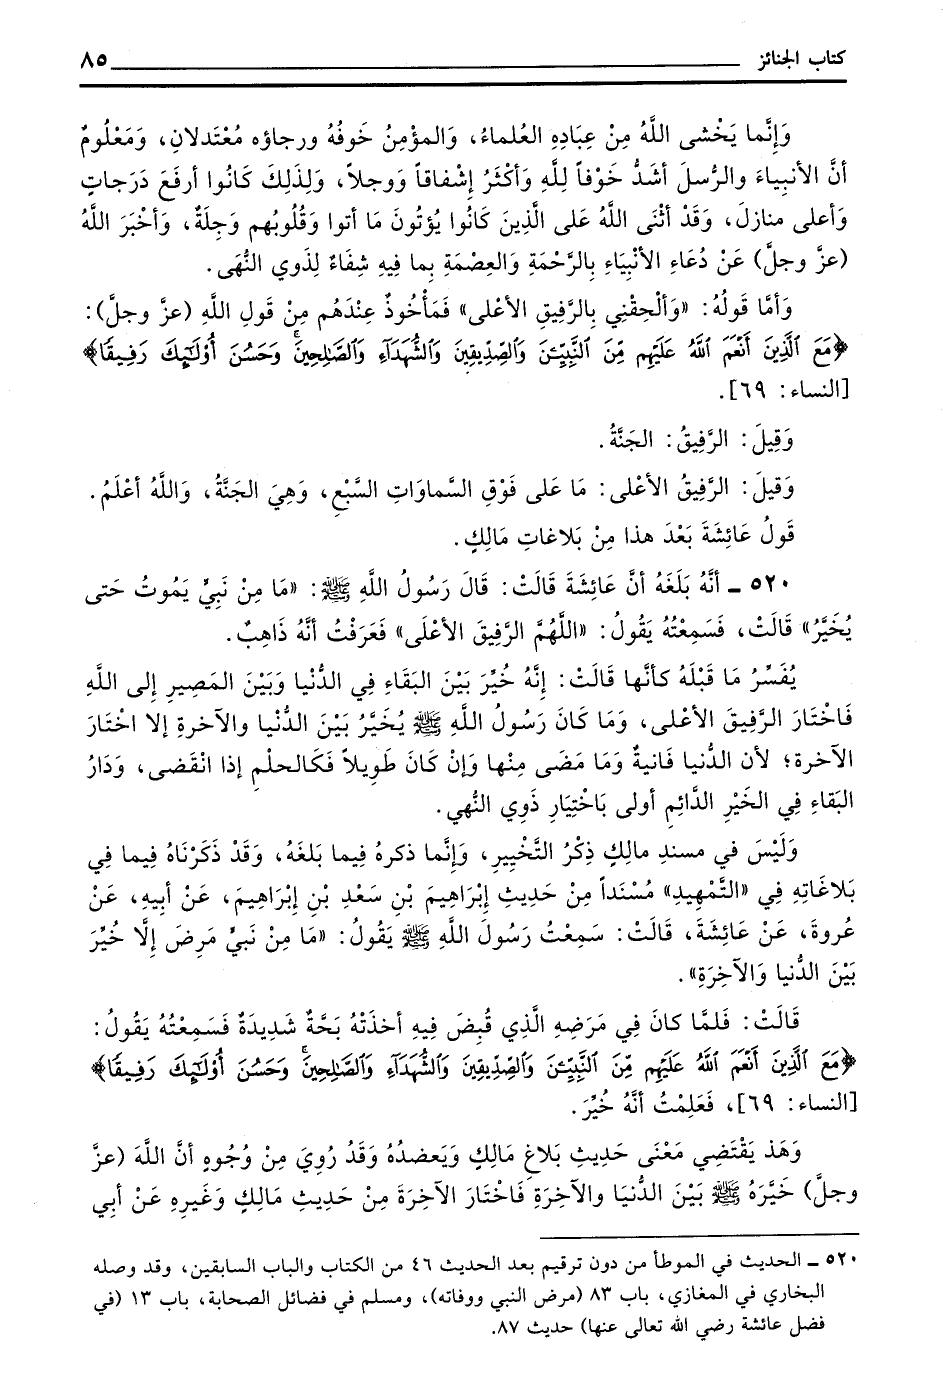 كتاب الجنائز ٨٥
وَإِنَّما يَخْشى اللَّهُ مِنْ عِبَادِهِ العُلماءُ، وَالمؤْمِنُ خَوفُهُ ورجاؤه مُعْتَدلانِ، وَمَعْلُومٌ
أنَّ الأنبِياءَ والرُّسلَ أشَدُّ خَوْفاً لِلَّهِ وَأكْثَرُ إشْفاقاً وَوجلاً، وَلِذَلِكَ كَانُوا أرفَعَ دَرَجاتٍ
وَأعلى منازِلَ، وَقَدْ أثْنَى اللَّهُ عَلى الَّذِينَ كَانُوا يُؤتُونَ مَا أتوا وَقُلوبُهم وَجِلَةٌ، وَأخْبَرَ اللَّهُ
(عزَّ وجلَّ) عَنْ دُعَاءِ الأنْبِيَاءِ بِالرَّحْمَةِ وَالعِصْمَةِ بِما فِيهِ شِفَاءٌ لِذَوي النُّهَى.
وَأمَّا قَولُهُ: «وَألْحِقْنِي بِالرَّفِيقِ الأعْلى» فَمَأْخُوذٌ عِنْدَهُم مِنْ قَولِ اللَّهِ (عزَّ وجلَّ):
﴿مَعَ ٱلَّذِينَ أَنْعَمَ ٱللَّهُ عَلَيْهِم مِّنَ ٱلنَّبِيِّـۧنَ وَٱلصِّدِّيقِينَ وَٱلشُّهَدَآءِ وَٱلصَّٰلِحِينَۚ وَحَسُنَ أُوْلَٰٓئِكَ رَفِيقًا﴾
[النساء: ٦٩].
وَقِيلَ: الرَّفِيقُ: الجَنَّةُ.
وَقيلَ: الرَّفِيقُ الأعْلى: مَا عَلى فَوْقِ السَّماوَاتِ السَّبْعِ، وَهِيَ الجَنَّةُ، وَاللَّهُ أعْلَمُ.
قَولُ عَائِشَةَ بَعْدَ هذا مِنْ بَلاغاتِ مَالِكٍ.
٥٢٠ ـ أنَّهُ بَلَغَهُ أنَّ عَائِشَةَ قَالَتْ: قَالَ رَسُولُ اللَّهِ ﷺ: «مَا مِنْ نَبِيٍّ يَمُوتُ حَتى
يُخَيَّرُ» قَالَتْ، فَسَمِعْتُهُ يَقُولُ: «اللَّهُمَّ الرَّفِيقَ الأعْلَى» فَعَرَفْتُ أنَّهُ ذَاهِبٌ.
يُفَسِّرُ مَا قَبْلَهُ كَأنَّها قَالَتْ: إنَّهُ خُيِّرَ بَيْنَ البَقَاءِ فِي الدُّنْيا وَبَيْنَ المَصِيرِ إلى اللَّهِ
فَاخْتَارَ الرَّفِيقَ الأعْلى، وَمَا كَانَ رَسُولُ اللَّهِ ﷺ يُخَيَّرُ بَيْنَ الدُّنْيا والآخرةِ إلا اخْتَارَ
الآخرةَ؛ لأن الدُّنْيا فَانِيةٌ وَمَا مَضَى مِنْها وَإنْ كَانَ طَوِيلاً فَكَالحلْمِ إذا انْقَضى، وَدَارُ
البَقاءِ فِي الخَيْرِ الدَّائِمِ أولى بَاخْتِيَارِ ذَوِي النُّهي.
وَلَيْسَ في مسندِ مالِكٍ ذِكْرُ التَّخْيِيرِ، وَإنَّما ذكرهُ فِيما بَلغَهُ، وَقَدْ ذَكَرْنَاهُ فِيما في
بَلاغَاتِهِ فِي «التَّمْهِيدِ» مُسْنَداً مِنْ حَدِيثِ إبْرَاهِيمَ بْنِ سَعْدِ بْنِ إبْرَاهِيمَ، عَنْ أبيهِ، عَنْ
عُروةَ، عَنْ عَائِشَةَ، قَالَتْ: سَمِعْتُ رَسُولَ اللَّهِ ﷺ يَقُولُ: «مَا مِنْ نَبِيٍّ مَرِضَ إلَّا خُيِّرَ
بَيْنَ الدُّنيا وَالآخِرَةِ».
قَالَتْ: فَلمَّا كانَ فِي مَرَضِهِ الَّذِي قُبِضَ فِيهِ أخذَتْهُ بَحَّةٌ شَدِيدَةٌ فَسَمِعْتُهُ يَقُولُ:
﴿مَعَ ٱلَّذِينَ أَنْعَمَ ٱللَّهُ عَلَيْهِم مِّنَ ٱلنَّبِيِّـۧنَ وَٱلصِّدِّيقِينَ وَٱلشُّهَدَآءِ وَٱلصَّٰلِحِينَۚ وَحَسُنَ أُوْلَٰٓئِكَ رَفِيقًا﴾
[النساء: ٦٩]، فَعَلِمْتُ أنَّهُ خُيِّرَ.
وَهَذ يَقْتَضِي مَعْنَى حَدِيثِ بَلاغِ مَالِكٍ وَيَعضدُهُ وَقَدُ رُوِيَ مِنْ وُجُوهٍ أنَّ اللَّهَ (عزَّ
وجلَّ) خَيَّرَهُ ﷺ بَيْنَ الدُّنيَا والآخِرَةِ فَاخْتَارَ الآخِرَةَ مِنْ حَدِيثِ مَالِكٍ وَغَيرِهِ عَنْ أبي
٥٢٠ ـ الحديث في الموطأ من دون ترقيم بعد الحديث ٤٦ من الكتاب والباب السابقين، وقد وصله
البخاري في المغازي، باب ٨٣ (مرض النبي ووفاته)، ومسلم في فضائل الصحابة، باب ١٣ (في
فضل عائشة رضي الله تعالى عنها) حديث ٨٧.